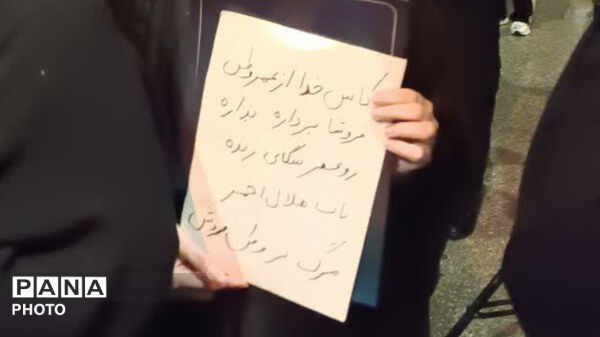 کاش خدا از عمر وطن
فروشا برداره بذاره
رو عمر سگای زنده
یاب هلال احمر
مرگ بر وطن فروش
PANA
PHOTO